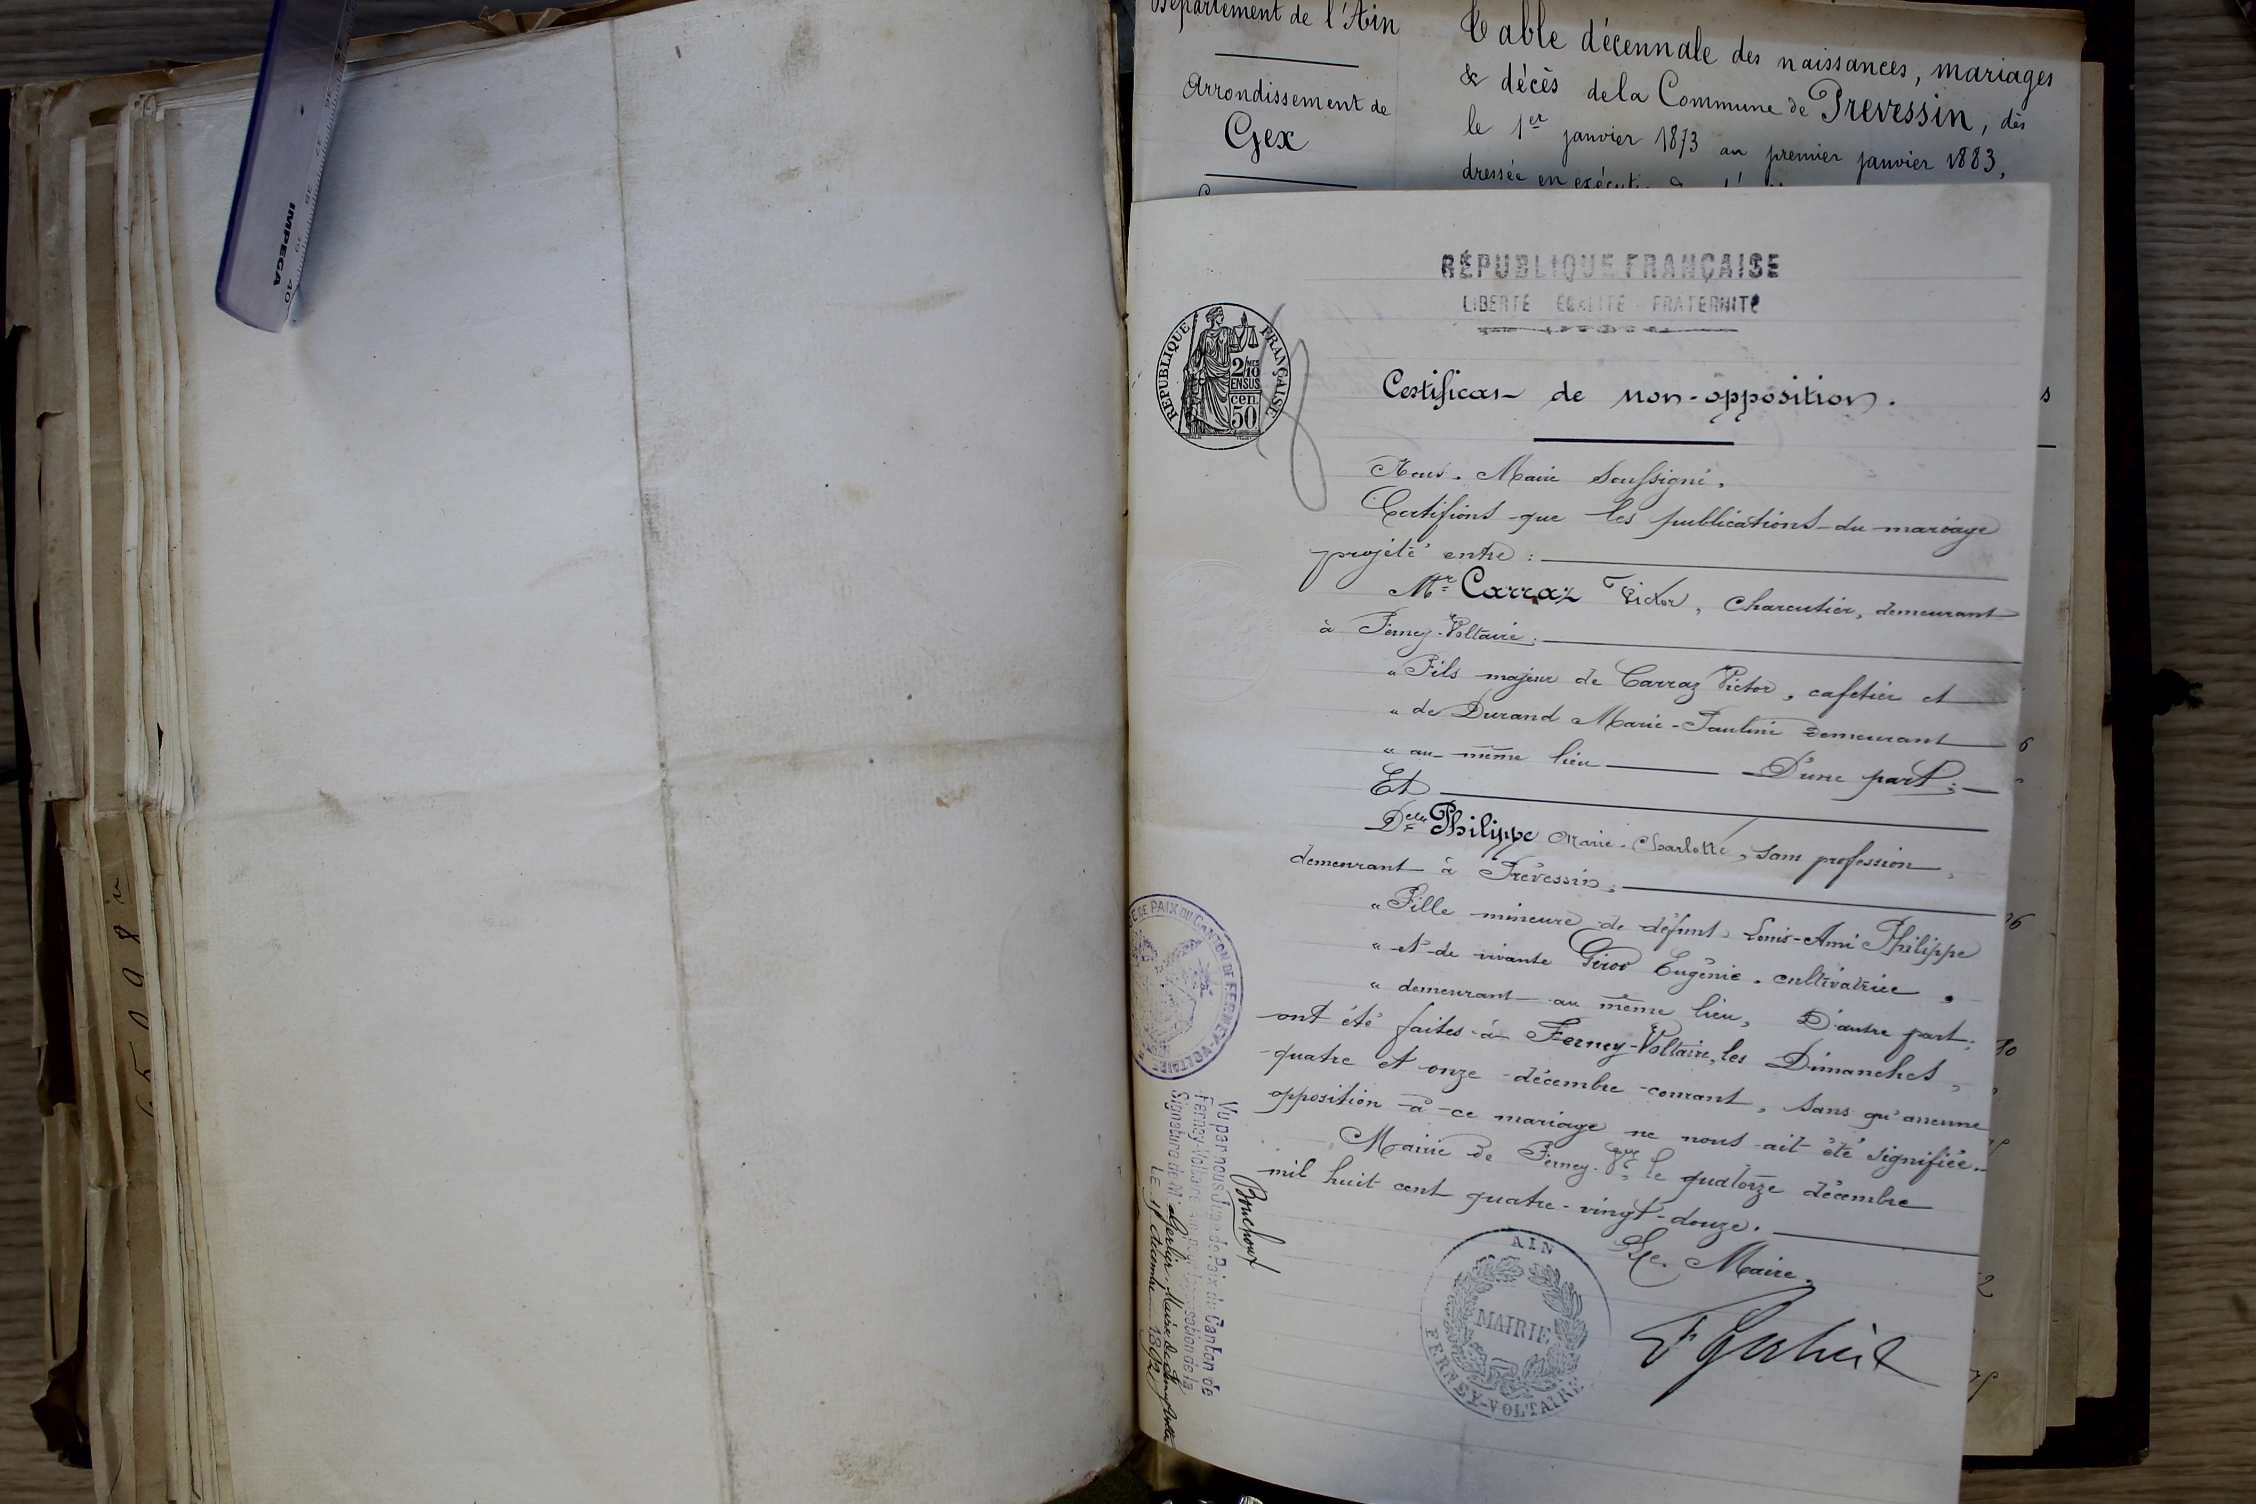 Département de l'Ain
Arrondissement de
Gex
Table décennale des naissances, mariages
& décès de la Commune de Prevessin, dès
le 1er janvier 1873 au premier janvier 1883,
dressée en
IMPEGA
40
RÉPUBLIQUE FRANÇAISE
LIBERTÉ EGALITÉ FRATERNITÉ
RÉPUBLIQUE FRANÇAISE
2/10
EN SUS
cen.
50
Certificat de non-opposition.
Nous, Maire Soussigné,
Certifions que les publications du mariage
projeté entre :
Mr Carraz Victor, charcutier, demeurant
à Ferney-Voltaire ;
" Fils majeur de Carraz Victor, cafetier et
" de Durand Marie-Pauline demeurant
" au même lieu D'une part ;
Et
Delle Philippe Marie-Charlotte, sans profession,
demeurant à Prévessin ;
" Fille mineure de défunt Louis-Ami Philippe
" et de vivante Girod Eugénie, cultivatrice,
" demeurant au même lieu, D'autre part ;
ont été faites à Ferney-Voltaire, les Dimanches,
quatre et onze décembre courant, sans qu'aucune
opposition à ce mariage ne nous ait été signifiée.
Mairie de Ferney-Vre, le quatorze décembre
mil huit cent quatre-vingt-douze.
Le Maire,
AIN
MAIRIE
FERNEY-VOLTAIRE
DE PAIX DU CANTON DE FERNEY-VOLTAIRE
Vu par nous Juge de Paix du Canton de
Ferney-Voltaire pour légalisation de la
Signature de M. Gerlier, Maire de Ferney-Voltaire
LE décembre 1892
Bouchoux